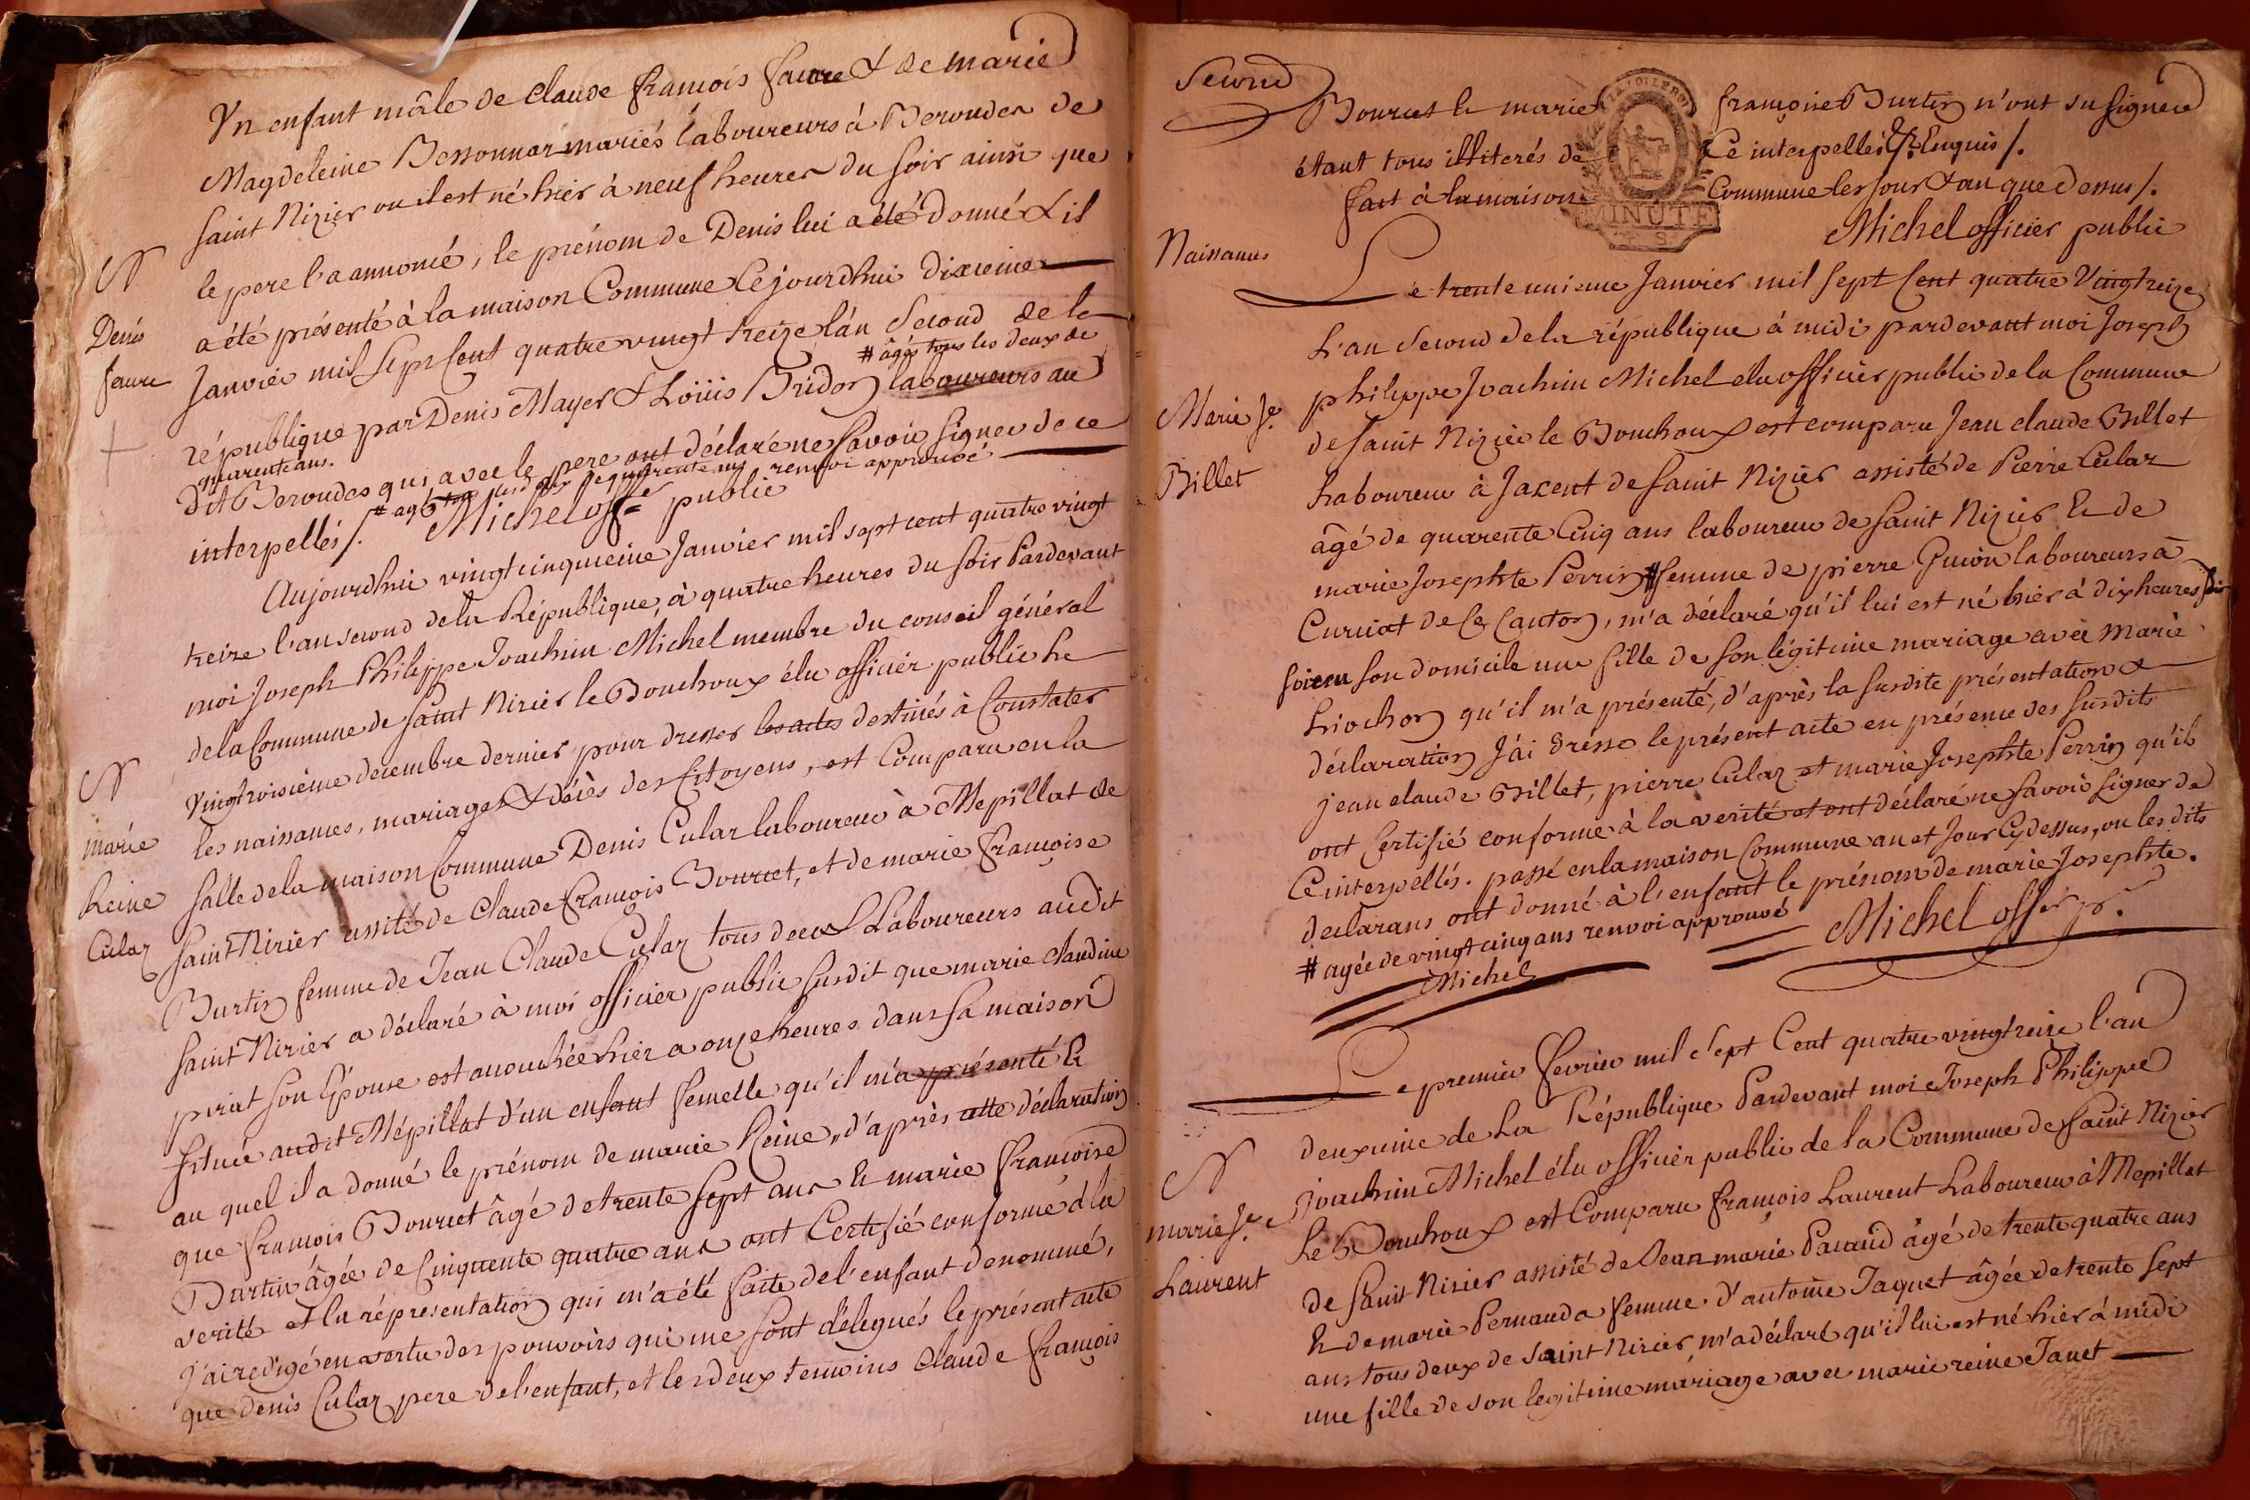 Yn enfant mâle de Claude françois faure & de marie
Magdeleine Bessonnar mariés laboureurs à Beroudes de
saint Nizier ou il est né hier à neuf heures du soir ainsi que
le pere l'a annoncé, le prénom de Denis lui a été donné & il
N
Denis
faure
a été présenté à la maison Commune Cejourdhui dixieme
Janvier mil sept Cent quatre vingt treize lán Second de la
# âgés tous les deux de
république par Denis Mayer & Loüis Bridon laboureurs au
quarente ans.
dit Beroudes qui avec le pere ont déclaré ne savoir signer de ce
interpellés /. Michel offer public
renvoi approuvé
Aujourdhui vingt cinquieme Janvier mil sept cent quatre vingt
treize l'an second de la République, à quatre heures du soir Pardevant
moi Joseph Philippe Joachim Michel membre du conseil général
de la Commune de saint Nizier le Bouchoux élu officier public le
vingtroisième decembre dernier pour dresser les actes destinés à Constater
les naissances, mariages & décès des Citoyens, est Comparu en la
N
marie
Reine
Culaz
salle de la maison Commune Denis Culaz laboureur à Mepillat de
Saint Nizier assité de Claude françois Bourcet, et de marie françoise
Burtin femme de Jean Claude Culaz tous deux Laboureurs audit
Saint Nizier a déclaré à moi officier public susdit que marie claudine
pirat son Epouse est accouchée hier a onze heures dans sa maison
située audit Mépillat d'un enfant femelle qu'il m'a présenté &
au quel il a donné le prénom de marie Reine, d'après cette déclaration
que françois Bourcet âgé de trente sept ans & marie françoise
Burtin âgée de Cinquente quatre ans ont Certifié conforme à la
verité et la répresentation qui m'a été faite de l'enfant denommé,
J'ai redigé en vertu des pouvoirs qui me sont délégués le présent acte
que denis Culaz pere de l'enfant, et les deux temoins Claude françois
Second
Bourcet & marie françoise Burtin n'ont su signer
étant tous illiterés de Ce interpellés & Enquis /.
fait à la maison Commune les jour & an que dessus /.
MINUTE
Michel officier public
Naissances
Le trente unieme Janvier mil sept Cent quatre Vingt treize
L'an second de la république à midi pardevant moi Joseph
philippe Joachim Michel elu officier public de la Commune
Marie Je.
Billet
de saint Nizier le Bouchoux est comparu Jean claude Billet
Laboureur à Jacent de saint Nizier assisté de Pierre Culaz
âgé de quarente Cinq ans laboureur de saint Nizier & de
marie Josephte Perrin # femme de pierre Guion laboureurs à
Curciat de Ce Canton, m'a déclaré qu'il lui est né hier à dix heures du
soir en son domicile une fille de son légitime mariage avec Marie
Liochon qu'il m'a présenté, d'après la susdite présentation &
déclaration J'ai dressé le présent acte en présence des susdits
jean claude Billet, pierre Culaz et marie Josephte Perrin qu'ils
ont Certifié conforme à la verité et ont déclaré ne savoir signer de
Ce interpellés. passé en la maison Commune an et Jour Cy dessus, ou les dits
declarans ont donné à l'enfant le prénom de marie Josephte.
# agée de vingt cinq ans renvoi approuvé
Michel
Michel offer p.
Le premier fevrier mil Sept Cent quatre vingt treize l'an
deuxieme de La République Pardevant moi Joseph Philippe
Joachim Michel élu officier public de la Commune de saint Nizier
N
marie Je.
Laurent
Le Bouchoux est Comparu françois Laurent Laboureur à Mepillat
de saint Nizier assisté de Jean marie Pacaud âgé de trente quatre ans
& de marie Pernauda femme d'antoine Jaquet âgée de trente sept
ans tous deux de saint Nizier, m'a déclaré qu'il lui est né hier à midi
une fille de son legitime mariage avec marie reine Janet